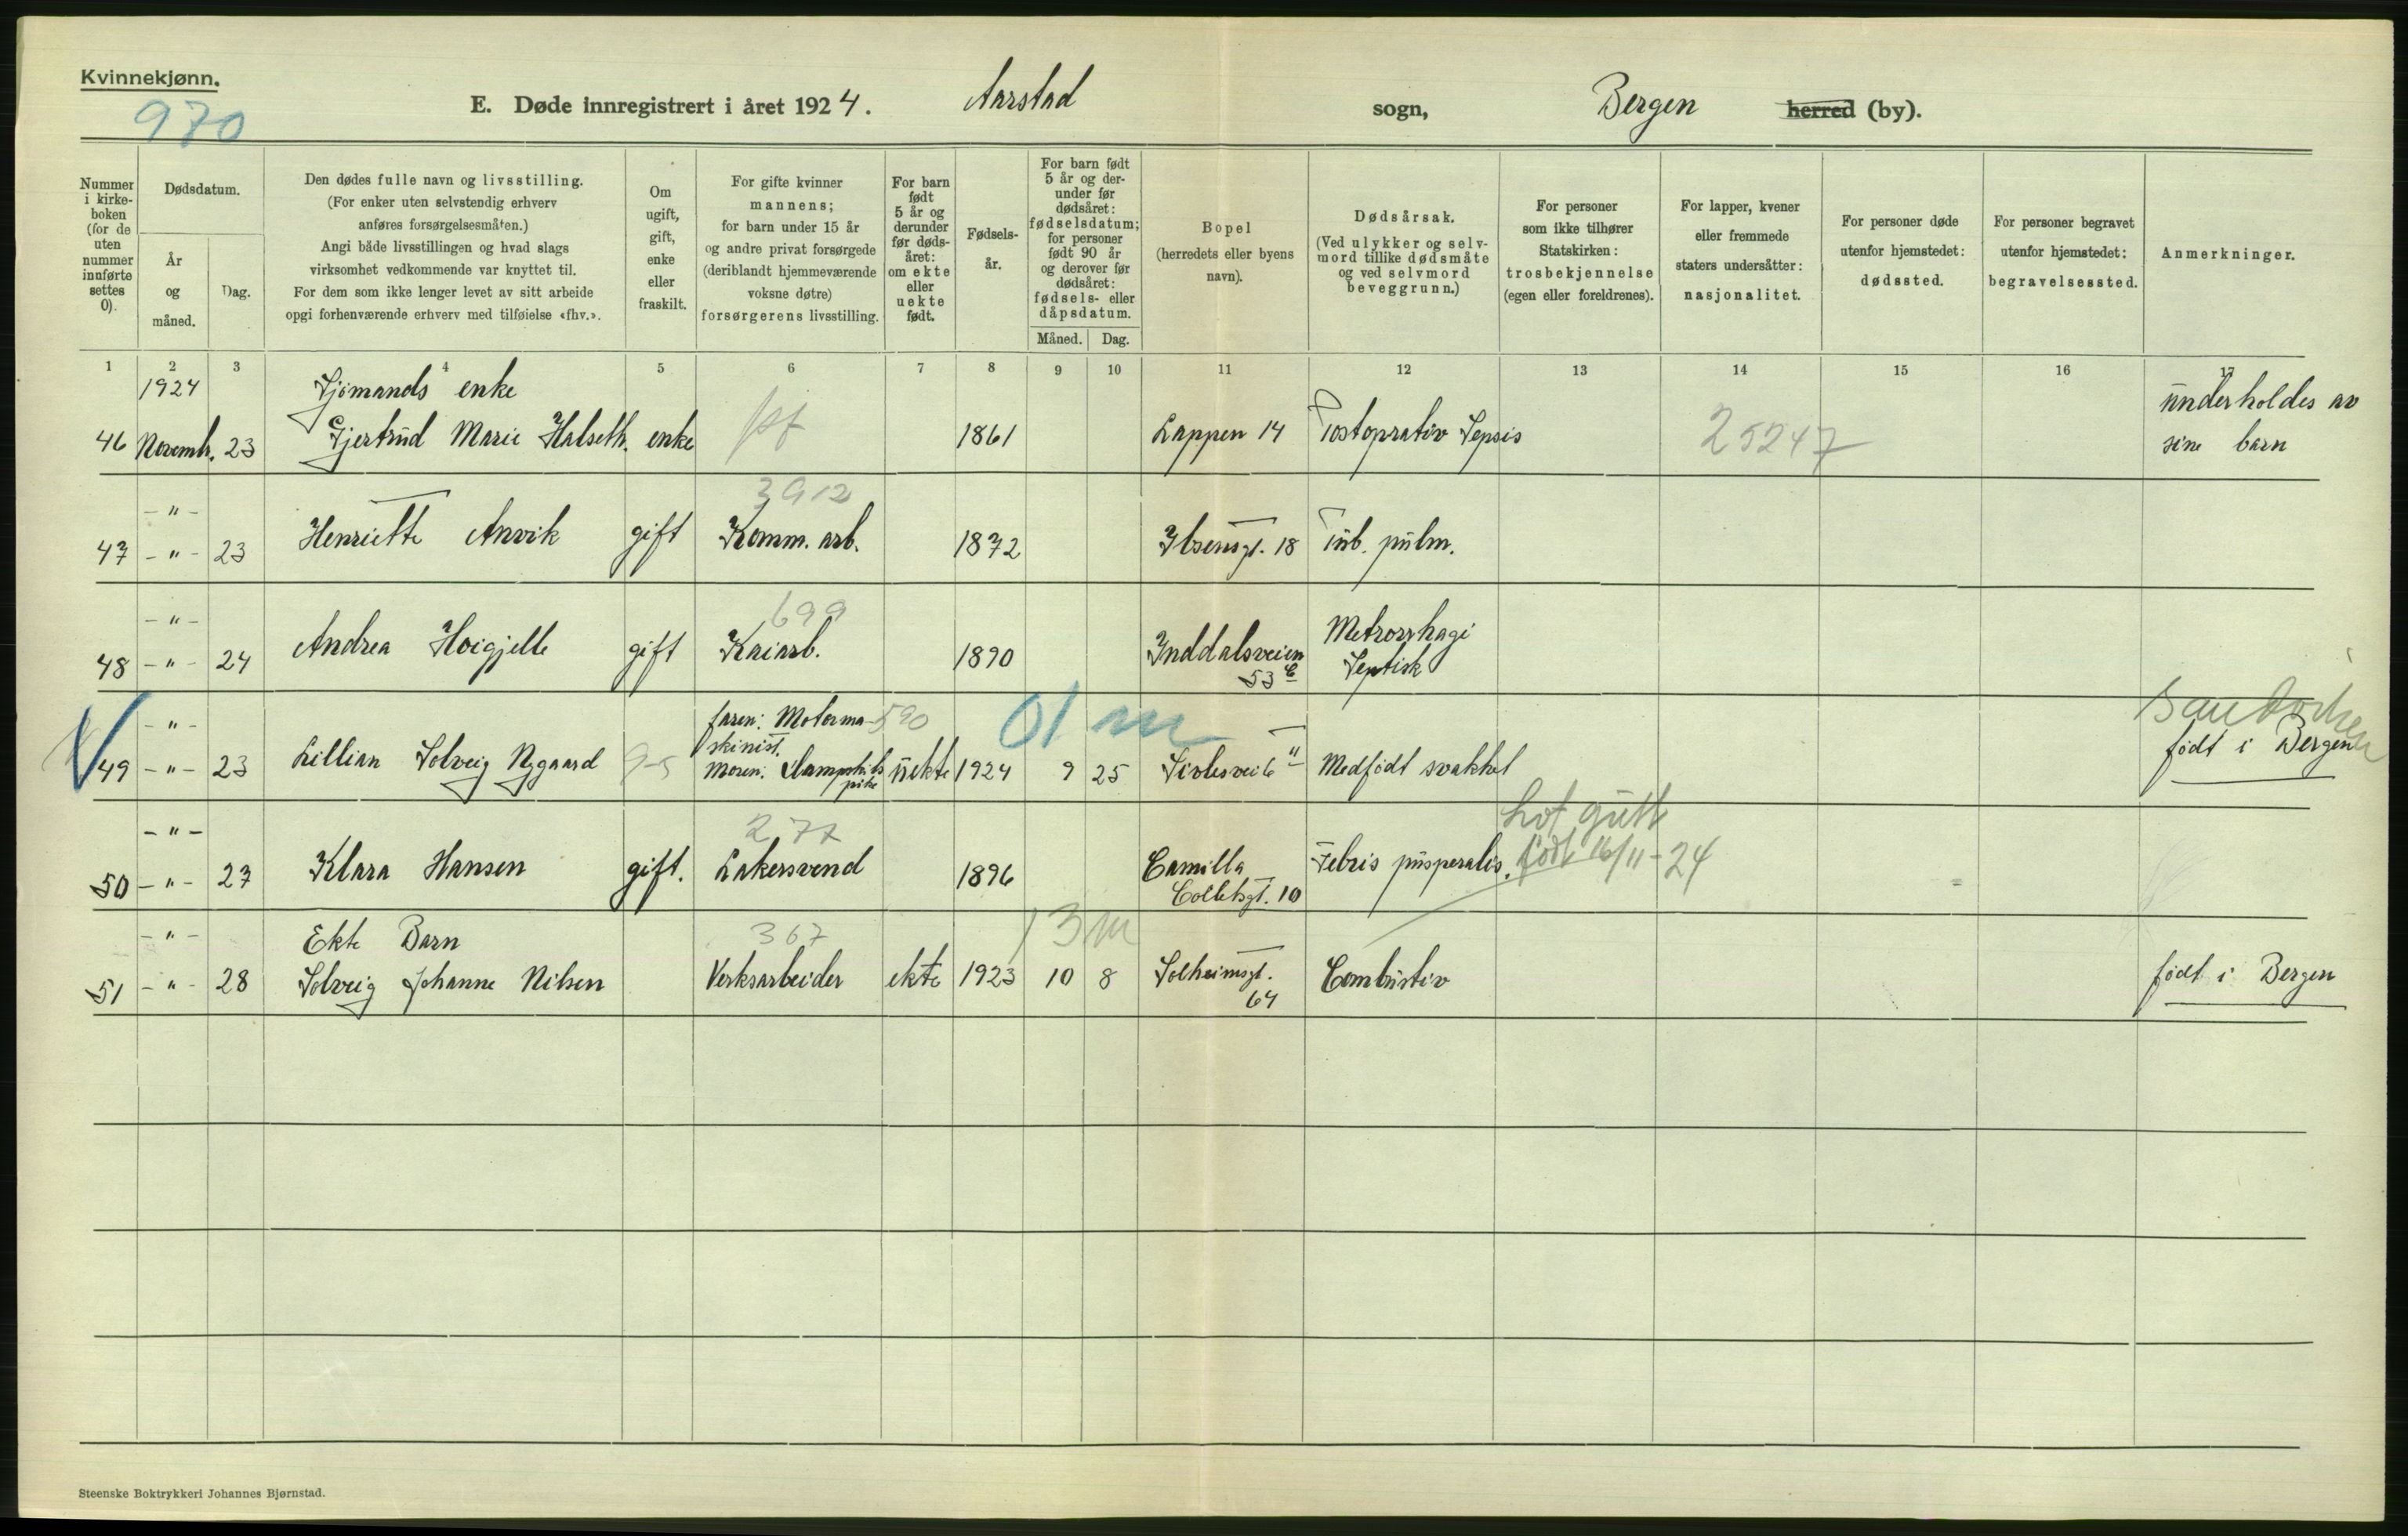 Kvinnekjønn.
970
E. Døde innregistrert i året 1924. Aarstad sogn, Bergen herred (by).
Nummer i kirkeboken (for de uten nummer innførte settes 0).
Dødsdatum.
År og måned.
Dag.
Den dødes fulle navn og livsstilling.
(For enker uten selvstendig erhverv
anføres forsørgelsesmåten.)
Angi både livsstillingen og hvad slags
virksomhet vedkommende var knyttet til.
For dem som ikke lenger levet av sitt arbeide
opgi forhenværende erhverv med tilføielse «fhv.».
Om ugift, gift, enke eller fraskilt.
For gifte kvinner
mannens;
for barn under 15 år
og andre privat forsørgede
(deriblandt hjemmeværende
voksne døtre)
forsørgerens livsstilling.
For barn født 5 år og derunder før dødsåret: om ekte eller uekte født.
Fødselsår.
For barn født 5 år og derunder før dødsåret: fødselsdatum; for personer født 90 år og derover før dødsåret: fødsels- eller dåpsdatum.
Måned. Dag.
Bopel
(herredets eller byens navn).
Dødsårsak.
(Ved ulykker og selvmord tillike dødsmåte og ved selvmord beveggrunn.)
For personer
som ikke tilhører
Statskirken:
trosbekjennelse
(egen eller foreldrenes).
For lapper, kvener
eller fremmede
staters undersåtter:
nasjonalitet.
For personer døde
utenfor hjemstedet:
dødssted.
For personer begravet
utenfor hjemstedet:
begravelsessted.
Anmerkninger.
1 2 3 4 5 6 7 8 9 10 11 12 13 14 15 16 17
1924 Sjømands enke underholdes av
46 Novemb. 23 Gjertrud Marie Halseth. enke 1861 Lappen 14 Postoprativ Sepsis 25247 sine barn
- " - 3912
47 - " - 23 Henriette Anvik gift Komm. arb. 1872 Ibsensgt. 18 Tub. pulm.
- " - 699
48 - " - 24 Andrea Hoigjelle gift Kaiarb. 1890 Inddalsveien 53 E Metrorrhagi Septisk
- " - faren: Motorma- 590 01 m
skinist.
49 - " - 23 Lillian Solveig Nygaard moren: uekte 1924 9 25 Medfødt svakhet født i Bergen
- " - 277 født 16/11-24
50 - " - 27 Klara Hansen gift. Lakersvend 1896 Camilla Colletsgt. 10 Febris puperalis.
- " - Ekte Barn 367 13 m
51 - " - 28 Solveig Johanne Nilsen Verksarbeider ekte 1923 10 8 Solheimsgt. 64 Combustio født i Bergen
Steenske Boktrykkeri Johannes Bjørnstad.